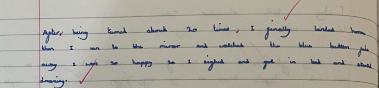 After, being turned around 20 times, I finally landed home
then I ran to the mirror and watched the blue button fade
away I was so happy so I sighed and got in bed and